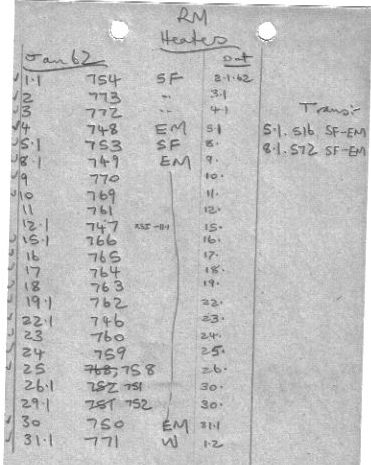 RM
Heaters
Jan 62 Out
1.1 754 SF 2.1.62
2 773 " 3.1
3 772 " 4.1 Transi
4 748 EM 5.1 5.1. 516 SF-EM
5.1 753 SF 8. 8.1. 572 SF-EM
8.1 749 EM 9.
9 770 10.
10 769 11.
11 761 12.
12.1 747 15.
15.1 766 16.
16 765 17.
17 764 18.
18 763 19.
19.1 762 22.
22.1 746 23.
23 760 24.
24 759 25.
25 768, 758 26.
26.1 752 751 30.
29.1 751 752 30.
30 750 EM 31.1
31.1 771 W 1.2